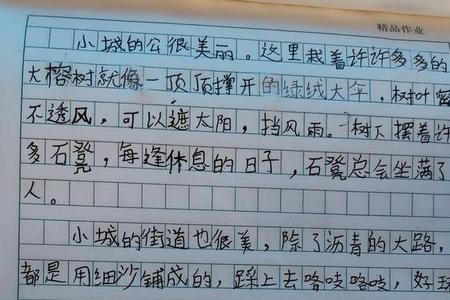 精品作业
小城的公很美丽。这里栽着许许多多的
大榕树就像一顶顶撑开的绿绒大伞,树叶密
不透风,可以遮太阳,挡风雨。树下摆着许
多石凳,每逢休息的日子,石凳总会坐满了
人。
小城的街道也很美,除了沥青的大路,
都是用细沙铺成的,踩上去咯吱咯吱,好